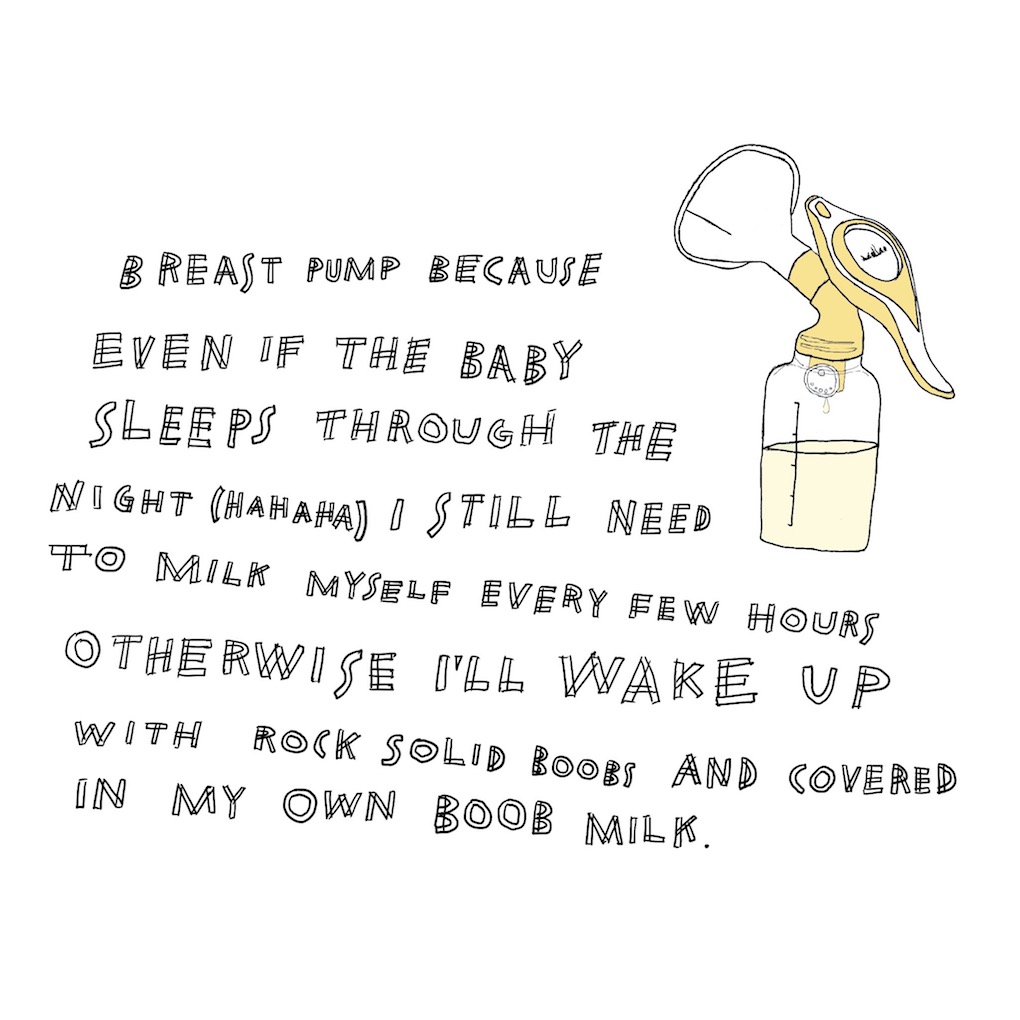 BREAST PUMP BECAUSE
EVEN IF THE BABY
SLEEPS THROUGH THE
NIGHT (HAHAHA) I STILL NEED
TO MILK MYSELF EVERY FEW HOURS
OTHERWISE I'LL WAKE UP
WITH ROCK SOLID BOOBS AND COVERED
IN MY OWN BOOB MILK.